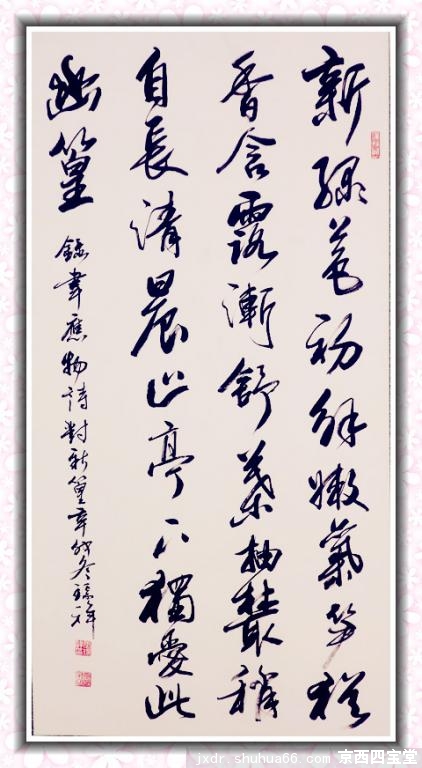 新綠苞初解嫩氣笋猶
香含露漸舒葉抽叢稍
自長清晨止亭下獨愛此
幽篁
錄韋應物詩對新篁辛卯冬祥
jxdr.shuhua66.com 京西四宝堂